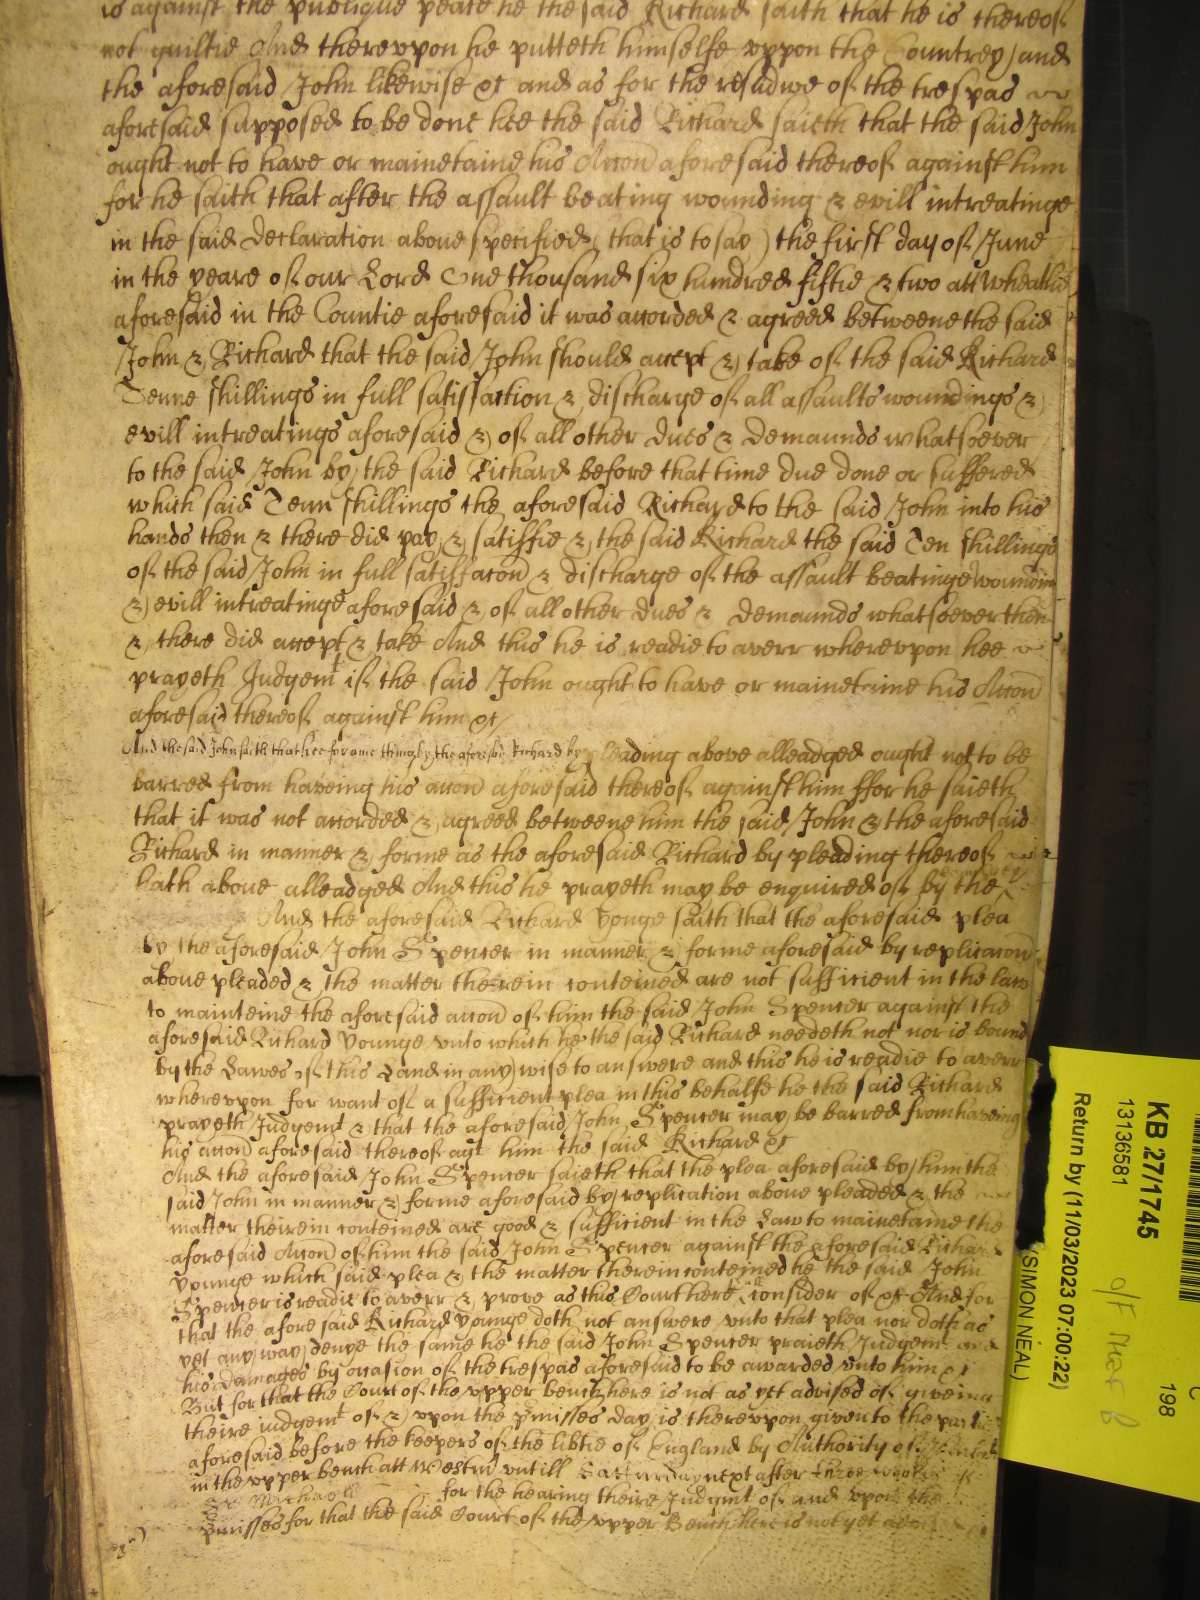 is against the publique peace he the said Richard saith that he is thereof
not guiltie And therevpon he putteth himselfe vppon the Countrey and
the aforesaid John likewise &c and as for the residwe of the trespas
aforesaid supposed to be done hee the said Richard saieth that the said John
ought not to have or mainetaine his Accon aforesaid thereof against him
for he saith that after the assault beating wounding & evill intreatinge
in the said declaration above specified (that is to say) the first day of June
in the yeare of our Lord One thousand six hundred fiftie & two att Wheatlie
aforesaid in the Countie aforesaid it was accorded & agreed betweene the said
John & Richard that the said John should accept & take of the said Richard
Tenne shillings in full satisfaction & discharge of all assaults woundings &
evill intreatings aforesaid & of all other dues & demaunds whatsoever
to the said John by the said Richard before that time due done or suffered
which said Tenn shillings the aforesaid Richard to the said John into his
hands then & there did pay & satisfie & the said Richard the said Ten shillings
of the said John in full satisfaccon & discharge of the assault beatinge wounding
& evill intreatinge aforesaid & of all other dues & demaunds whatsoever then
& there did accept & take And this he is readie to averr wherevpon hee
prayeth Judgemt if the said John ought to have or mainetaine his Accon
aforesaid thereof against him &c
And the said John saith that hee for anie thing by the aforesaid Richard by pleading above alleadged ought not to be
barred from haveing his accon aforesaid thereof against him ffor he saieth
that it was not accorded & agreed betweene him the said John & the aforesaid
Richard in manner & forme as the aforesaid Richard by pleading thereof
hath above alleadged And this he prayeth may be enquired of by the
And the aforesaid Richard Yonge saith that the aforesaid plea
by the aforesaid John Spencer in manner & forme aforesaid by replicacon
above pleaded & the matter therein conteined are not sufficient in the law
to mainteine the aforesaid accon of him the said John Spencer against the
aforesaid Richard Younge vnto which he the said Richard needeth not nor is bound
by the Lawes of this Land in any wise to answere and this he is readie to averr
wherevpon for want of a sufficient plea in this behalfe he the said Richard
prayeth Judgemt & that the aforesaid John Spencer may be barred from haveing
his accon aforesaid thereof agt him the said Richard &c
And the aforesaid John Spencer saieth that the plea aforesaid by him the
said John in manner & forme aforesaid by replication above pleaded & the
matter theirein conteined are good & sufficient in the Law to mainetaine the
aforesaid Accon of him the said John Spencer against the aforesaid Richard
Younge which said plea & the matter therein conteined he the said John
Spencer is readie to averr & prove as this Court here consider of &c And for
that the aforesaid Richard Younge doth not answere vnto that plea nor doth as
yet any way denye the same he the said John Spencer praieth Judgemt and
his damages by occasion of the trespas aforesaid to be awarded vnto him &c
But for that the Court of the vpper bench here is not as yet advised of giveing
theire iudgemt of & vpon the pmisses day is therevpon given to the parties
aforesaid before the keepers of the libtie of England by Authority of
in the vpper bench att Westm vntill Satturday next after three weekes of
St Michaell for the hearing theire Judgmt of and vpon the
pmisses for that the said Court of the vpper Bench here is not yet
KB 27/1745
13136581
Return by (11/03/2023 07:00:22)
(SIMON NEAL)
198
C